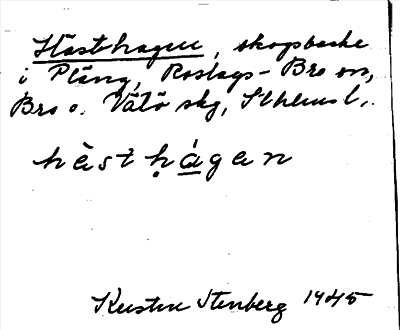 Hästhagen, skogsbacke
i Pläng, Roslags-Bro sn,
Bro o. Vätö skg, Sthlms l.
hà̈stḥágan
Kerstin Stenberg 1945